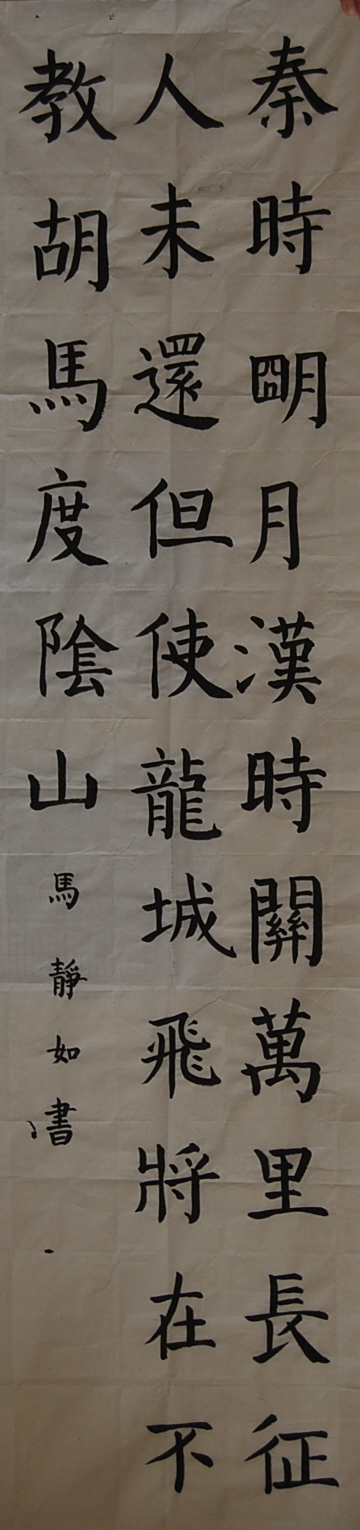 秦時朙月漢時關萬里長征
人未還但使龍城飛將在不
教胡馬度陰山
馬靜如書